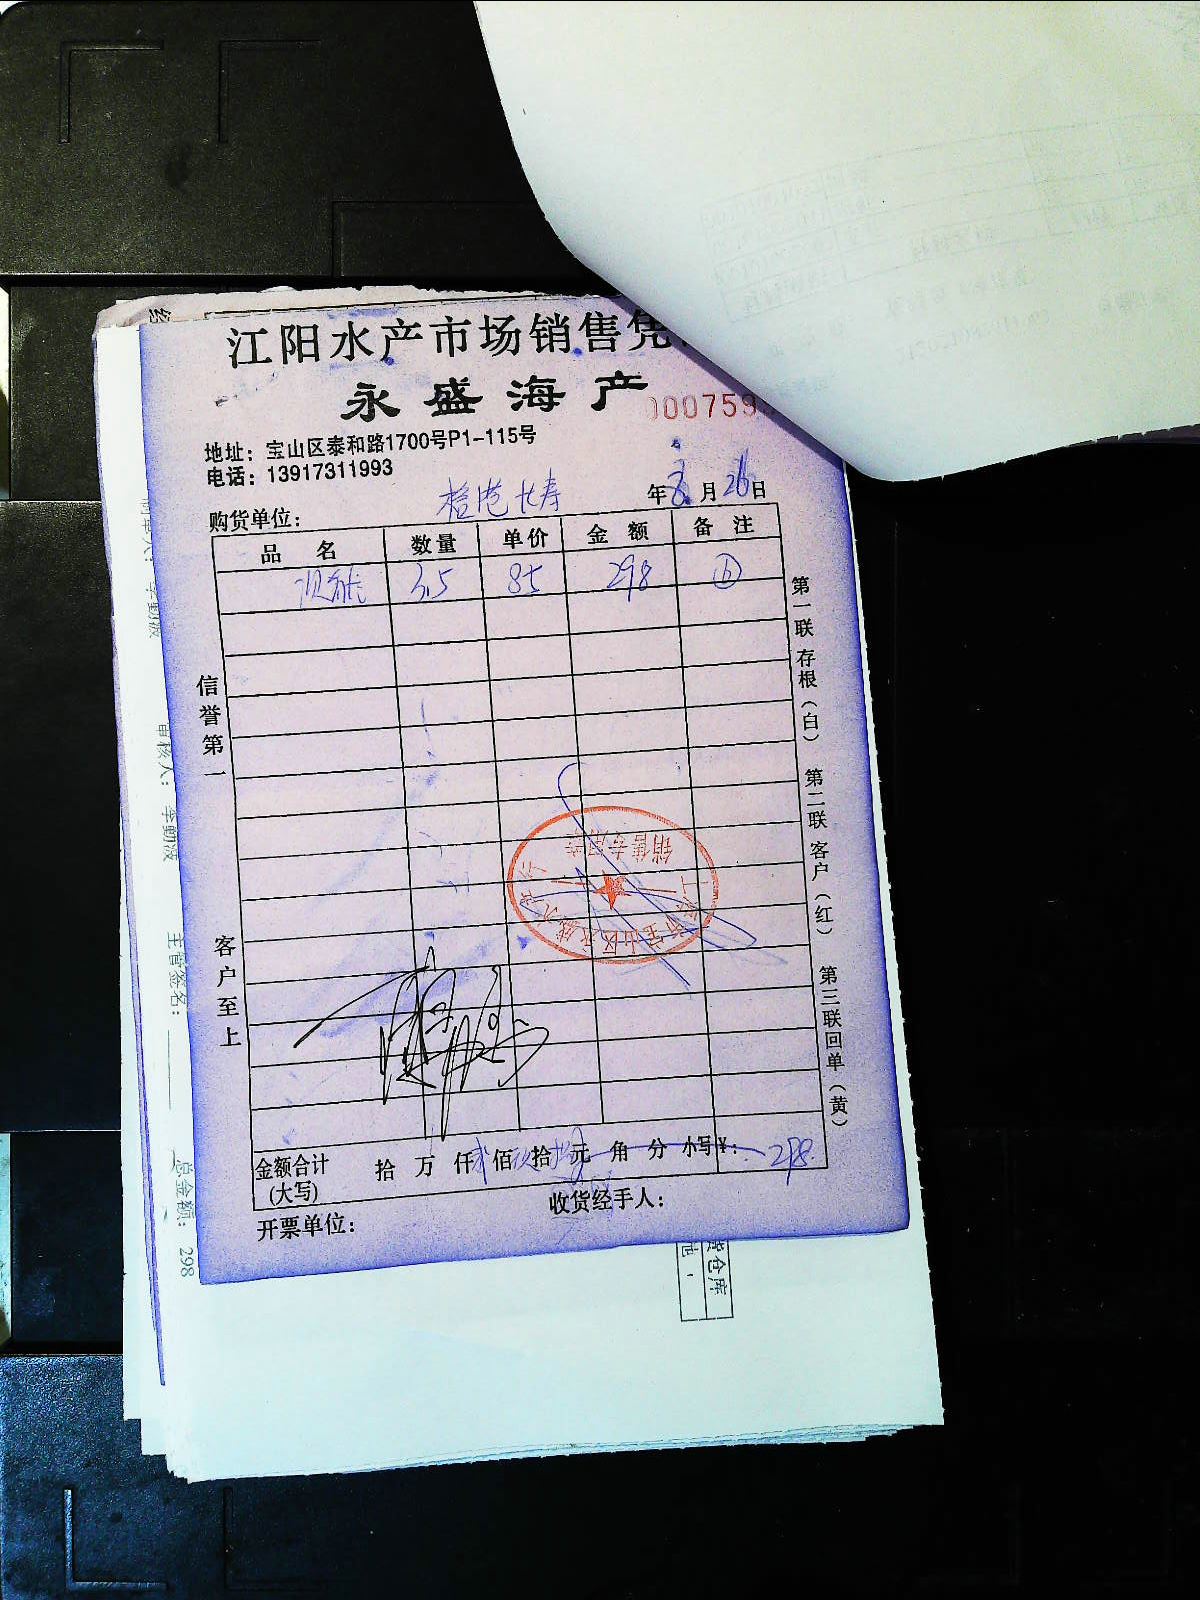 江阳水产市场销售凭
永盛海产
000759
地址：宝山区泰和路1700号P1-115号
电话：13917311993
年8月26日
购货单位：
品 名 数量 单价 金 额 备 注
3.5 85 298
信誉第一
客户至上
第一联 存根（白） 第二联 客户（红） 第三联 回单（黄）
销售专用章
金额合计（大写） 拾 万 仟贰佰玖拾捌元 角 分 小写￥：298
收货经手人：
开票单位：
审核人： 李勤波
主管签名：
总金额： 298
货仓库